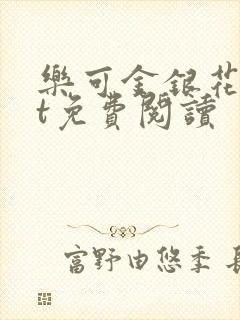 樂可金銀花
t免費閱讀
富野由悠季